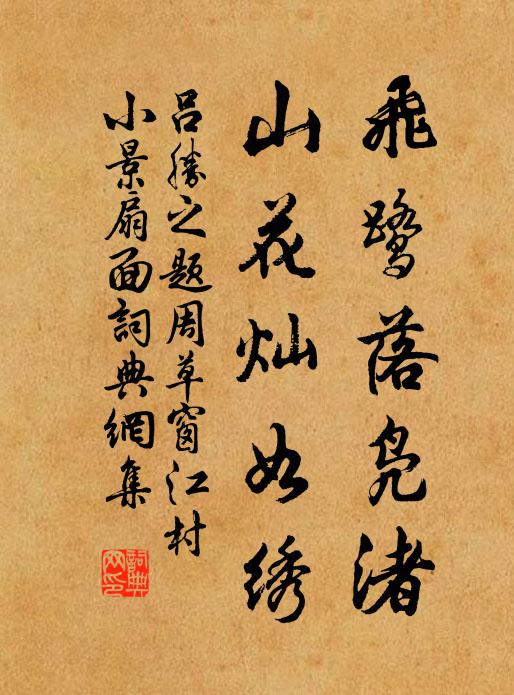 飛鹭落凫渚
山花灿如绣
吕勝之题周草窗江村
小景扇面詞典網集
詞典
网印